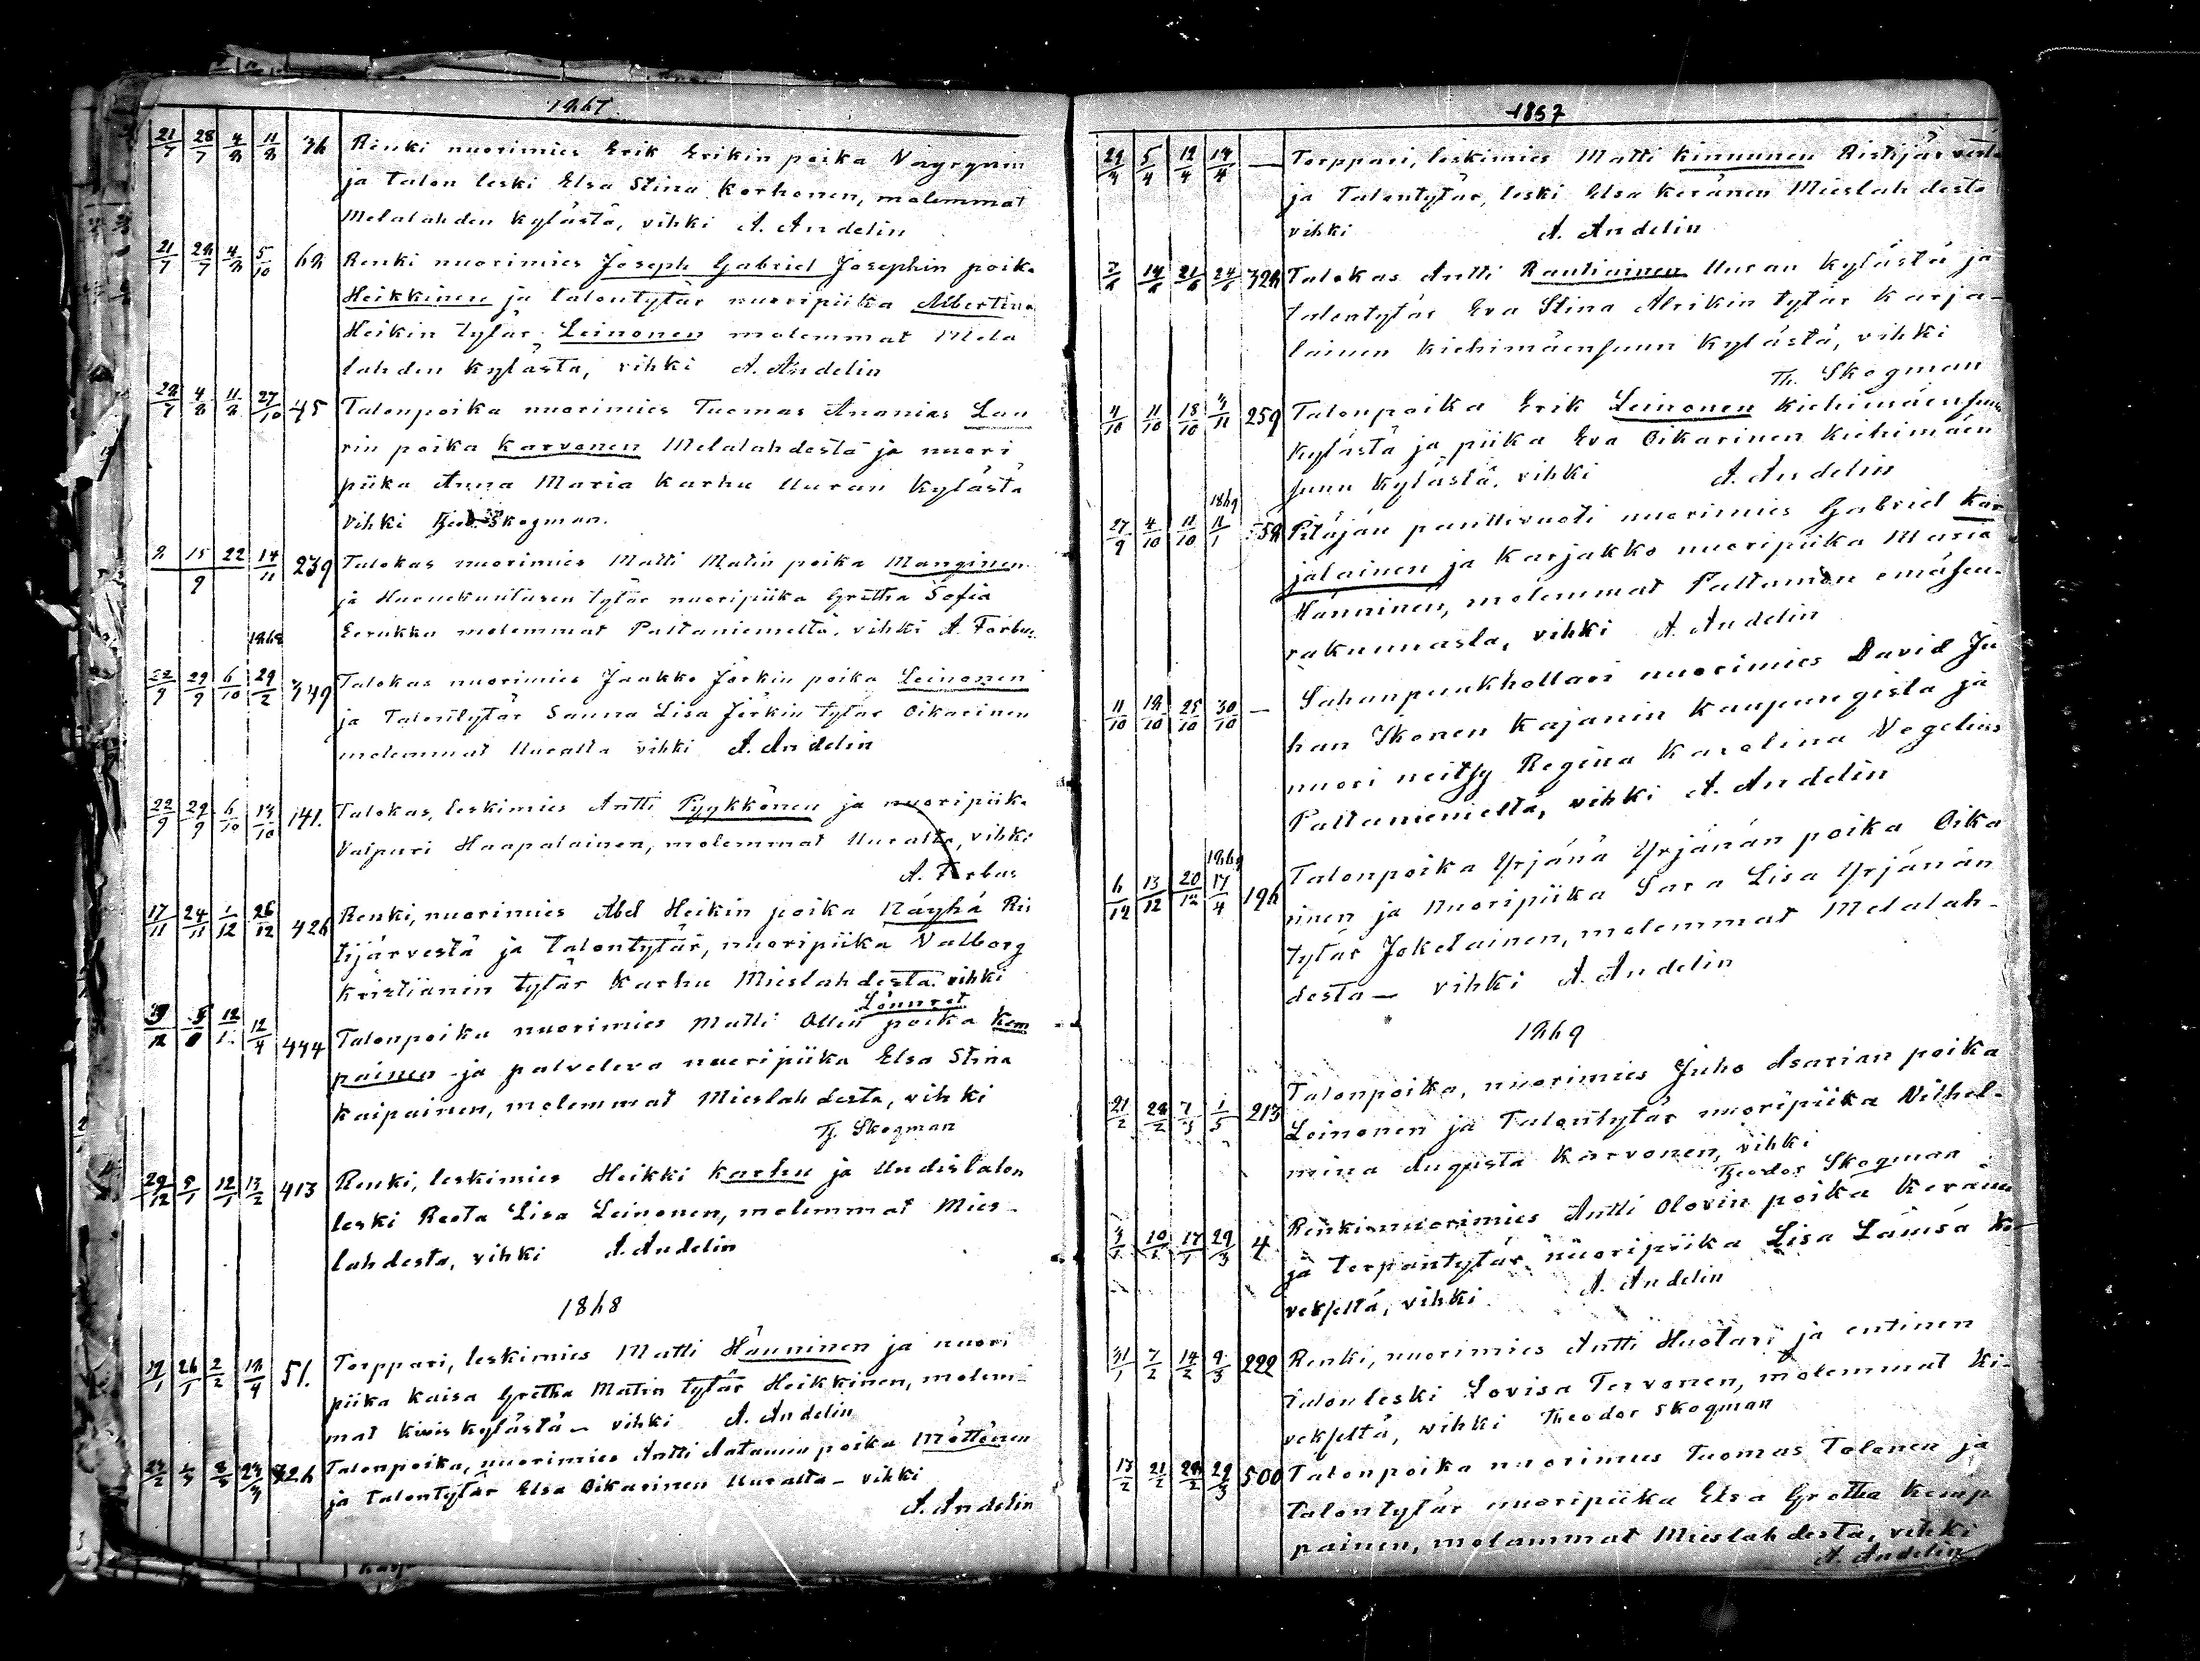 1867
21/7 28/7 4/8 11/8 36 Renki nuorimies Erik Erikin poika Väyrynen
ja talon leski Elsa Stina Korhonen, molemmat
Melalahden kylästä, vihki A. Andelin
21/7 28/7 4/8 5/10 62 Renki nuorimies Joseph Gabriel Josephin poika
Heikkinen ja talontytär nuoripiika Albertina
Heikin tytär Leinonen molemmat Mela
lahden kylästä, vihki A. Andelin
28/7 4/8 11/8 27/10 45 Talonpoika nuorimies Tuomas Ananias Lau
rin poika Karvonen Melalahdesta ja nuori
piika Anna Maria Karhu Uuran kylästä
vihki Skogman.
8 15 22 9 14/11 239 Talokas nuorimies Matti Matin poika Manginen
ja Huonekuntasen tytär nuoripiika Gretha Sofia
Eerukka molemmat Paltaniemeltä, vihki A. Forbus
1868
22/9 29/9 6/10 29/2 349 Talokas nuorimies Jaakko Jörkin poika Leinonen
ja Talontytär Sanna Lisa Jörkin tytär Oikarinen
molemmat Uuralta vihki A. Andelin
22/9 29/9 6/10 13/10 141. Talokas, leskimies Antti Pyykkönen ja nuoripiika
Valpuri Haapalainen, molemmat Uuralta, vihki
A. Forbus
17/11 24/11 1/12 26/12 426 Renki, nuorimies Abel Heikin poika Näyhä Ris
tijärvestä ja Talontytär, nuoripiika Valborg
Kristianin tytär Karhu Mieslahdesta vihki
Lönnrot
12/1 12/4 444 Talonpoika nuorimies Matti Ollin poika Kem
painen ja palveleva nuoripiika Elsa Stina
Kaipainen, molemmat Mieslahdesta, vihki
Th. Skogman
29/12 5/1 12/1 13/2 413 Renki, leskimies Heikki Karhu ja Uudistalon
leski Reeta Lisa Leinonen, molemmat Mies-
lahdesta, vihki A. Andelin
1868
19/1 26/1 2/2 18/4 51. Torppari, leskimies Matti Hänninen ja nuori
piika Kaisa Gretha Matin tytär Heikkinen, molem-
mat Kivis kylästä – vihki A. Andelin
Talonpoika, nuorimies Antti Aatamin poika Möttönen
ja Talontytär Elsa Oikarinen Uuralta – vihki
A. Andelin
1857
29/3 5/4 12/4 14/4 — Torppari, leskimies Matti Kinnunen Ristijärvestä
ja Talontytär, leski Elsa Keränen Mieslahdesta
vihki A. Andelin
7/6 14/6 21/6 24/6 328 Talokas Antti Rautiainen Uuran kylästä ja
talontytär Eva Stina Abrikin tytär Karja-
lainen Kiehimäensuun kylästä, vihki
Th. Skogman
4/10 11/10 18/10 3/11 259 Talonpoika Erik Leinonen Kiehimäensuun
kylästä ja piika Eva Oikarinen Kiehimäen
suun kylästä, vihki A. Andelin
1869
27/9 4/10 11/10 11/1 Pitäjän punttivuoti nuorimies Gabriel Kar
jalainen ja Karjakko nuoripiika Maria
Hänninen, molemmat Paltamon emäseu-
rakunnasta, vihki A. Andelin
11/10 18/10 25/10 30/10 — Sahanpuukhollari nuorimies David Ju
han Ikonen Kajanin kaupungista ja
nuori neitsy Regina Karolina Vegelius
Paltaniemeltä, vihki A. Andelin
1869
6/12 13/12 20/12 17/4 196 Talonpoika Yrjänä Yrjänän poika Oika
rinen ja Nuoripiika Sara Lisa Yrjänän
tytär Jokelainen, molemmat Melalah-
desta – vihki A. Andelin
1869
21/2 28/2 7/3 1/5 213 Talonpoika, nuorimies Juho Asarian poika
Leinonen ja Talontytär nuoripiika Vilhel-
mina Augusta Karvonen, vihki
Theodor Skogman
3/1 10/1 17/1 29/3 4 Renki nuorimies Antti Olovin poika Keränen
ja Torpantytär nuoripiika Lisa Lämsä Ki-
veksestä, vihki A. Andelin
31/1 7/2 14/2 9/3 222 Renki, nuorimies Antti Huotari ja entinen
talonleski Lovisa Tervonen, molemmat Ki-
vekseltä, vihki Theodor Skogman
21/2 28/2 29/3 500 Talonpoika nuorimies Tuomas Tolonen ja
talontytär nuoripiika Elsa Gretha Kemp
painen, molammat Mieslahdesta, vihki
A. Andelin